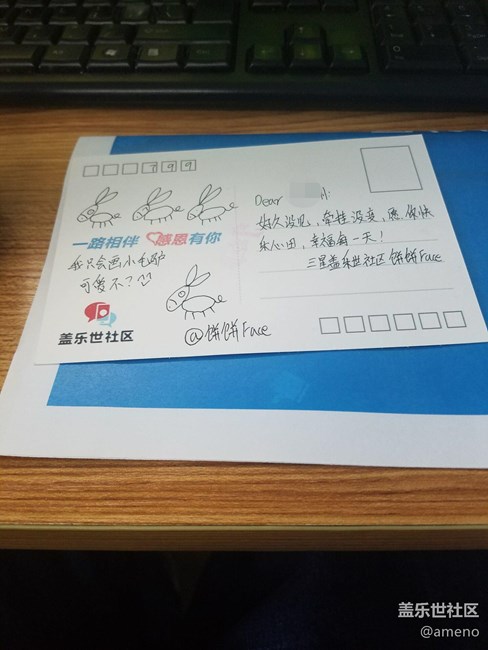 一路相伴 感恩有你
我只会画小毛驴
可爱不?
盖乐世社区
@饼饼Face
Dear
好久没见,牵挂没变,愿你快
乐心田,幸福每一天!
三星盖乐世社区 饼饼Face
盖乐世社区
@ameno